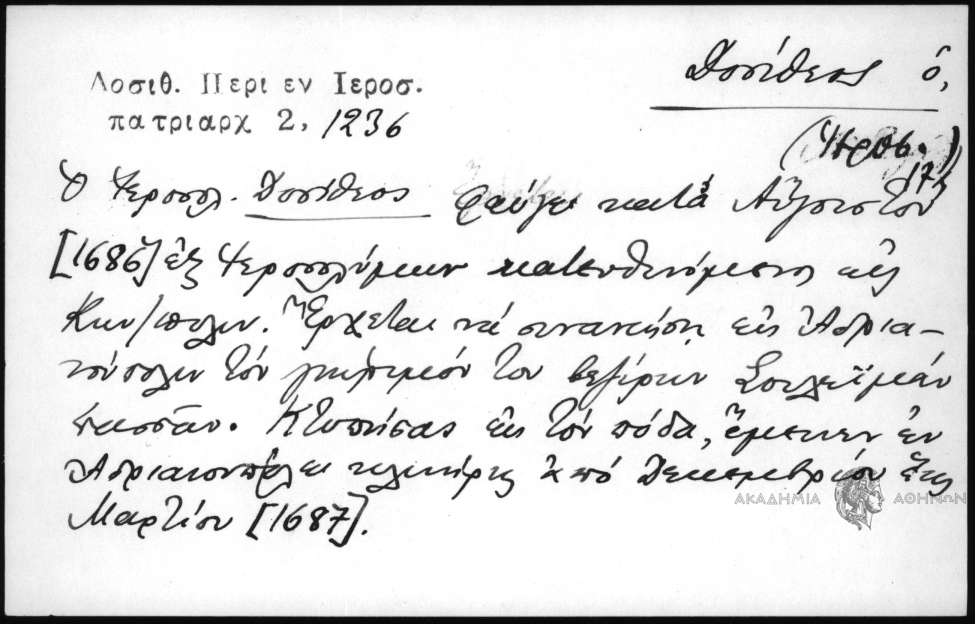 Δοσιθ. Περι εν Ιεροσ.
πατριαρχ 2, 1236
Δοσίθεος ὁ,
(Ἱεροσ.)
17
Ὁ Ἱεροσολ. Δοσίθεος φεύγει κατὰ Αὔγουστον
[1686] ἐξ Ἱεροσολύμων κατευθυνόμενος εἰς
Κων/πολιν. Ἔρχεται νά συναντήσῃ εἰς Ἀδρια-
νούπολιν τόν τοῦ βεζίρη Σουλεϊμάν
πασσᾶν. Κτυπήσας εἰς τόν πόδα, ἔμεινεν ἐν
Ἀδριανουπόλει κλινήρης ἀπό Δεκεμβρίου ἕως
Μαρτίου [1687].
ΑΚΑΔΗΜΙΑ ΑΘΗΝΩΝ